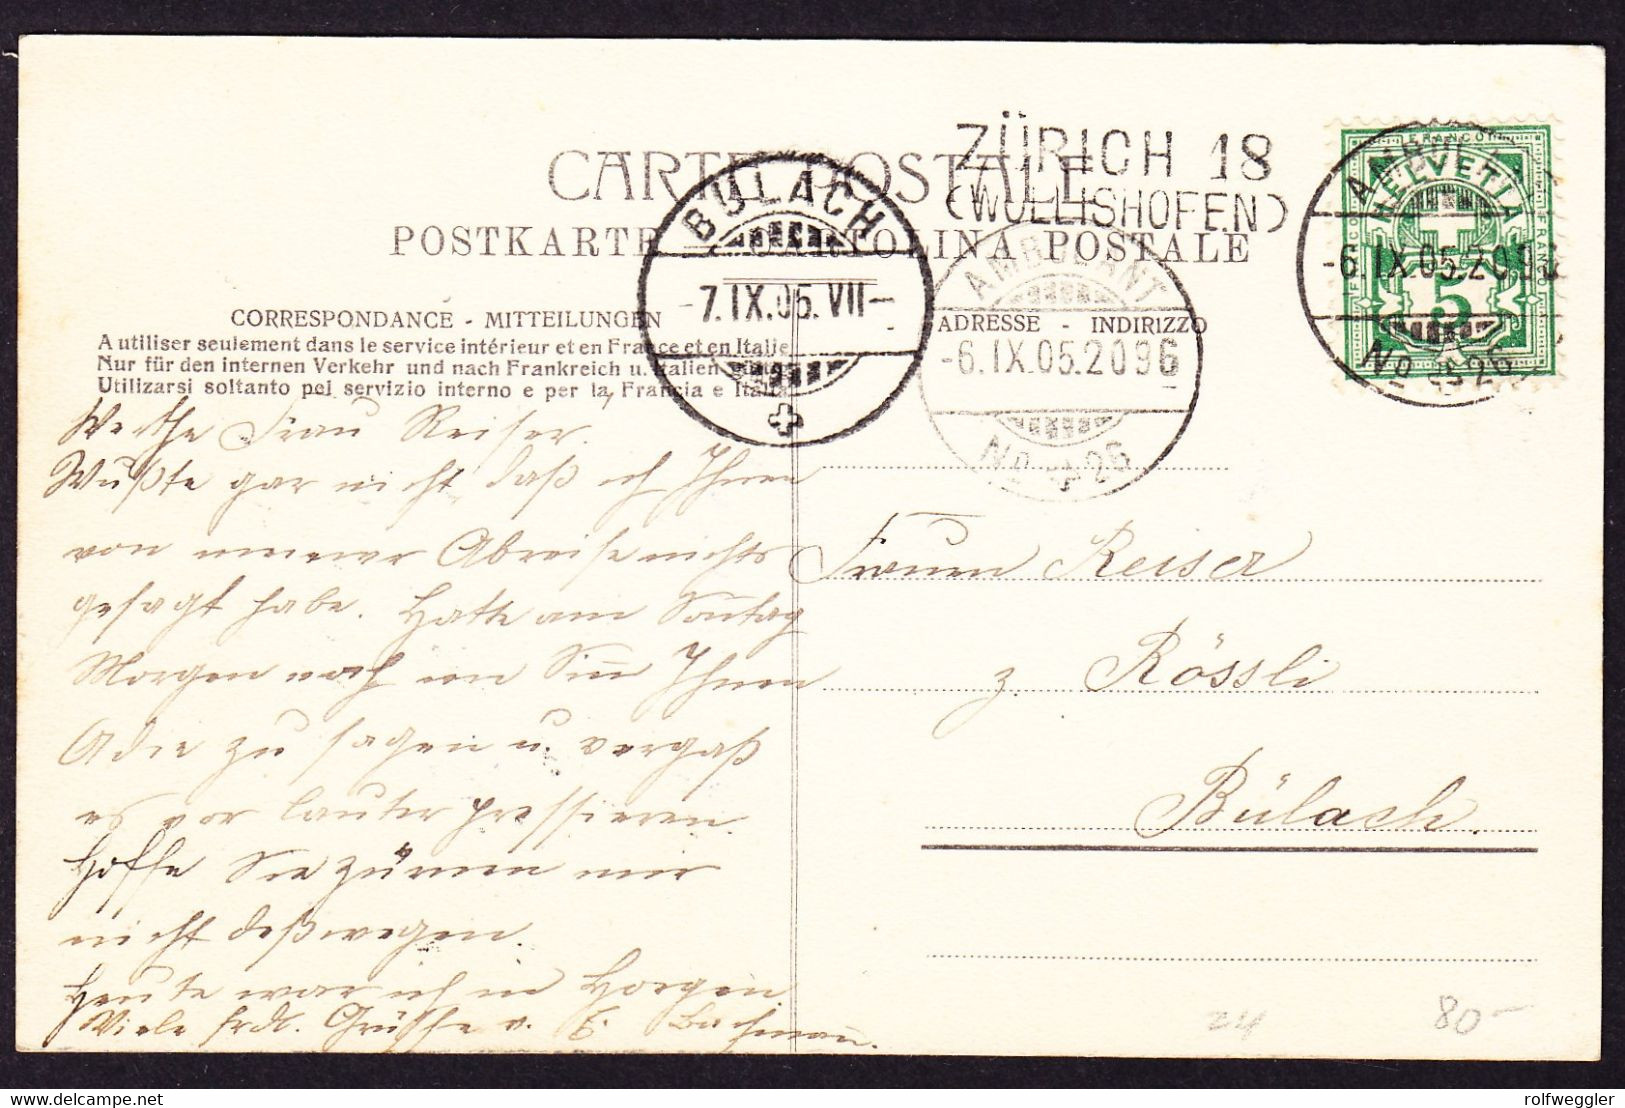 ZÜRICH 18
(WOLLISHOFEN)
CARTE POSTALE
POSTKARTE - CARTOLINA POSTALE
BÜLACH
-7.IX.05.VII-
AMBULANT
-6.IX.05.2096
No 26
AMBULANT
-6.IX.05.2096
No 26
FRANCO
HELVETIA
5
CORRESPONDANCE - MITTEILUNGEN
A utiliser seulement dans le service intérieur et en France et en Italie
Nur für den internen Verkehr und nach Frankreich u. Italien
Utilizarsi soltanto pel servizio interno e per la Francia e Italia
ADRESSE - INDIRIZZO
Werthe Frau Reiser.
Wußte gar nicht daß ich Ihnen
von meiner Abreise nichts
gesagt habe. Hatte am Sontag
Morgen noch im Sinn Ihnen
Adie zu sagen u. vergaß
es vor lauter pressieren.
Hoffe Sie zürnen mir
nicht deßwegen.
Heute war ich in Horgen
Viele frdl. Grüsse v. E. Bachmann.
Frauen Reiser
z. Rössli
Bülach.
24
80-
delcampe.net
rolfweggler